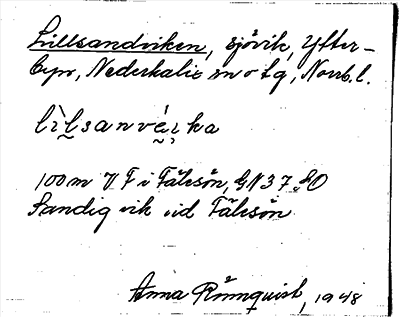 Lillsandviken, sjövik, Ytter-
byn, Nederkalix sn o tg, Norrb.l.
lìl̬sanvá̬ı̣ka
100 m V F i Fälsön, GN37.80
Sandig vik vid Fälsön
Anna Rönnquist, 1948